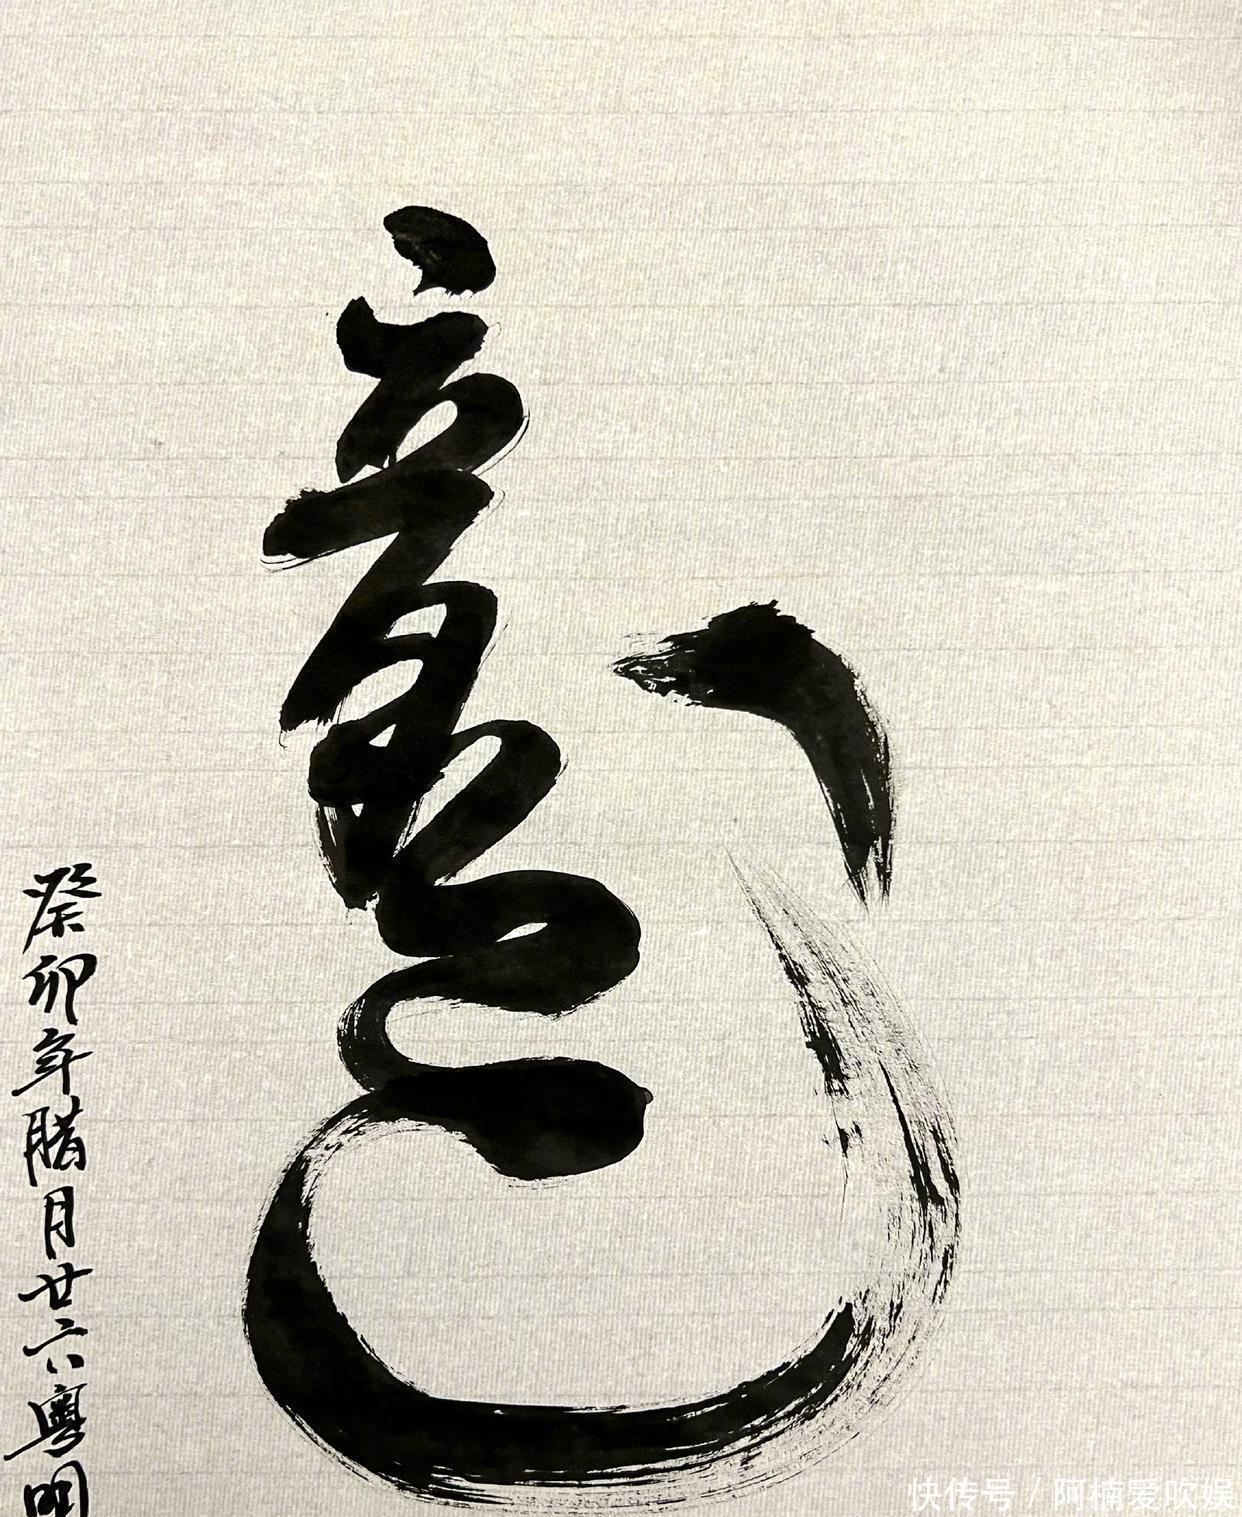 龍
癸卯年腊月廿六粤明
快传号 / 阿楠爱吹娱